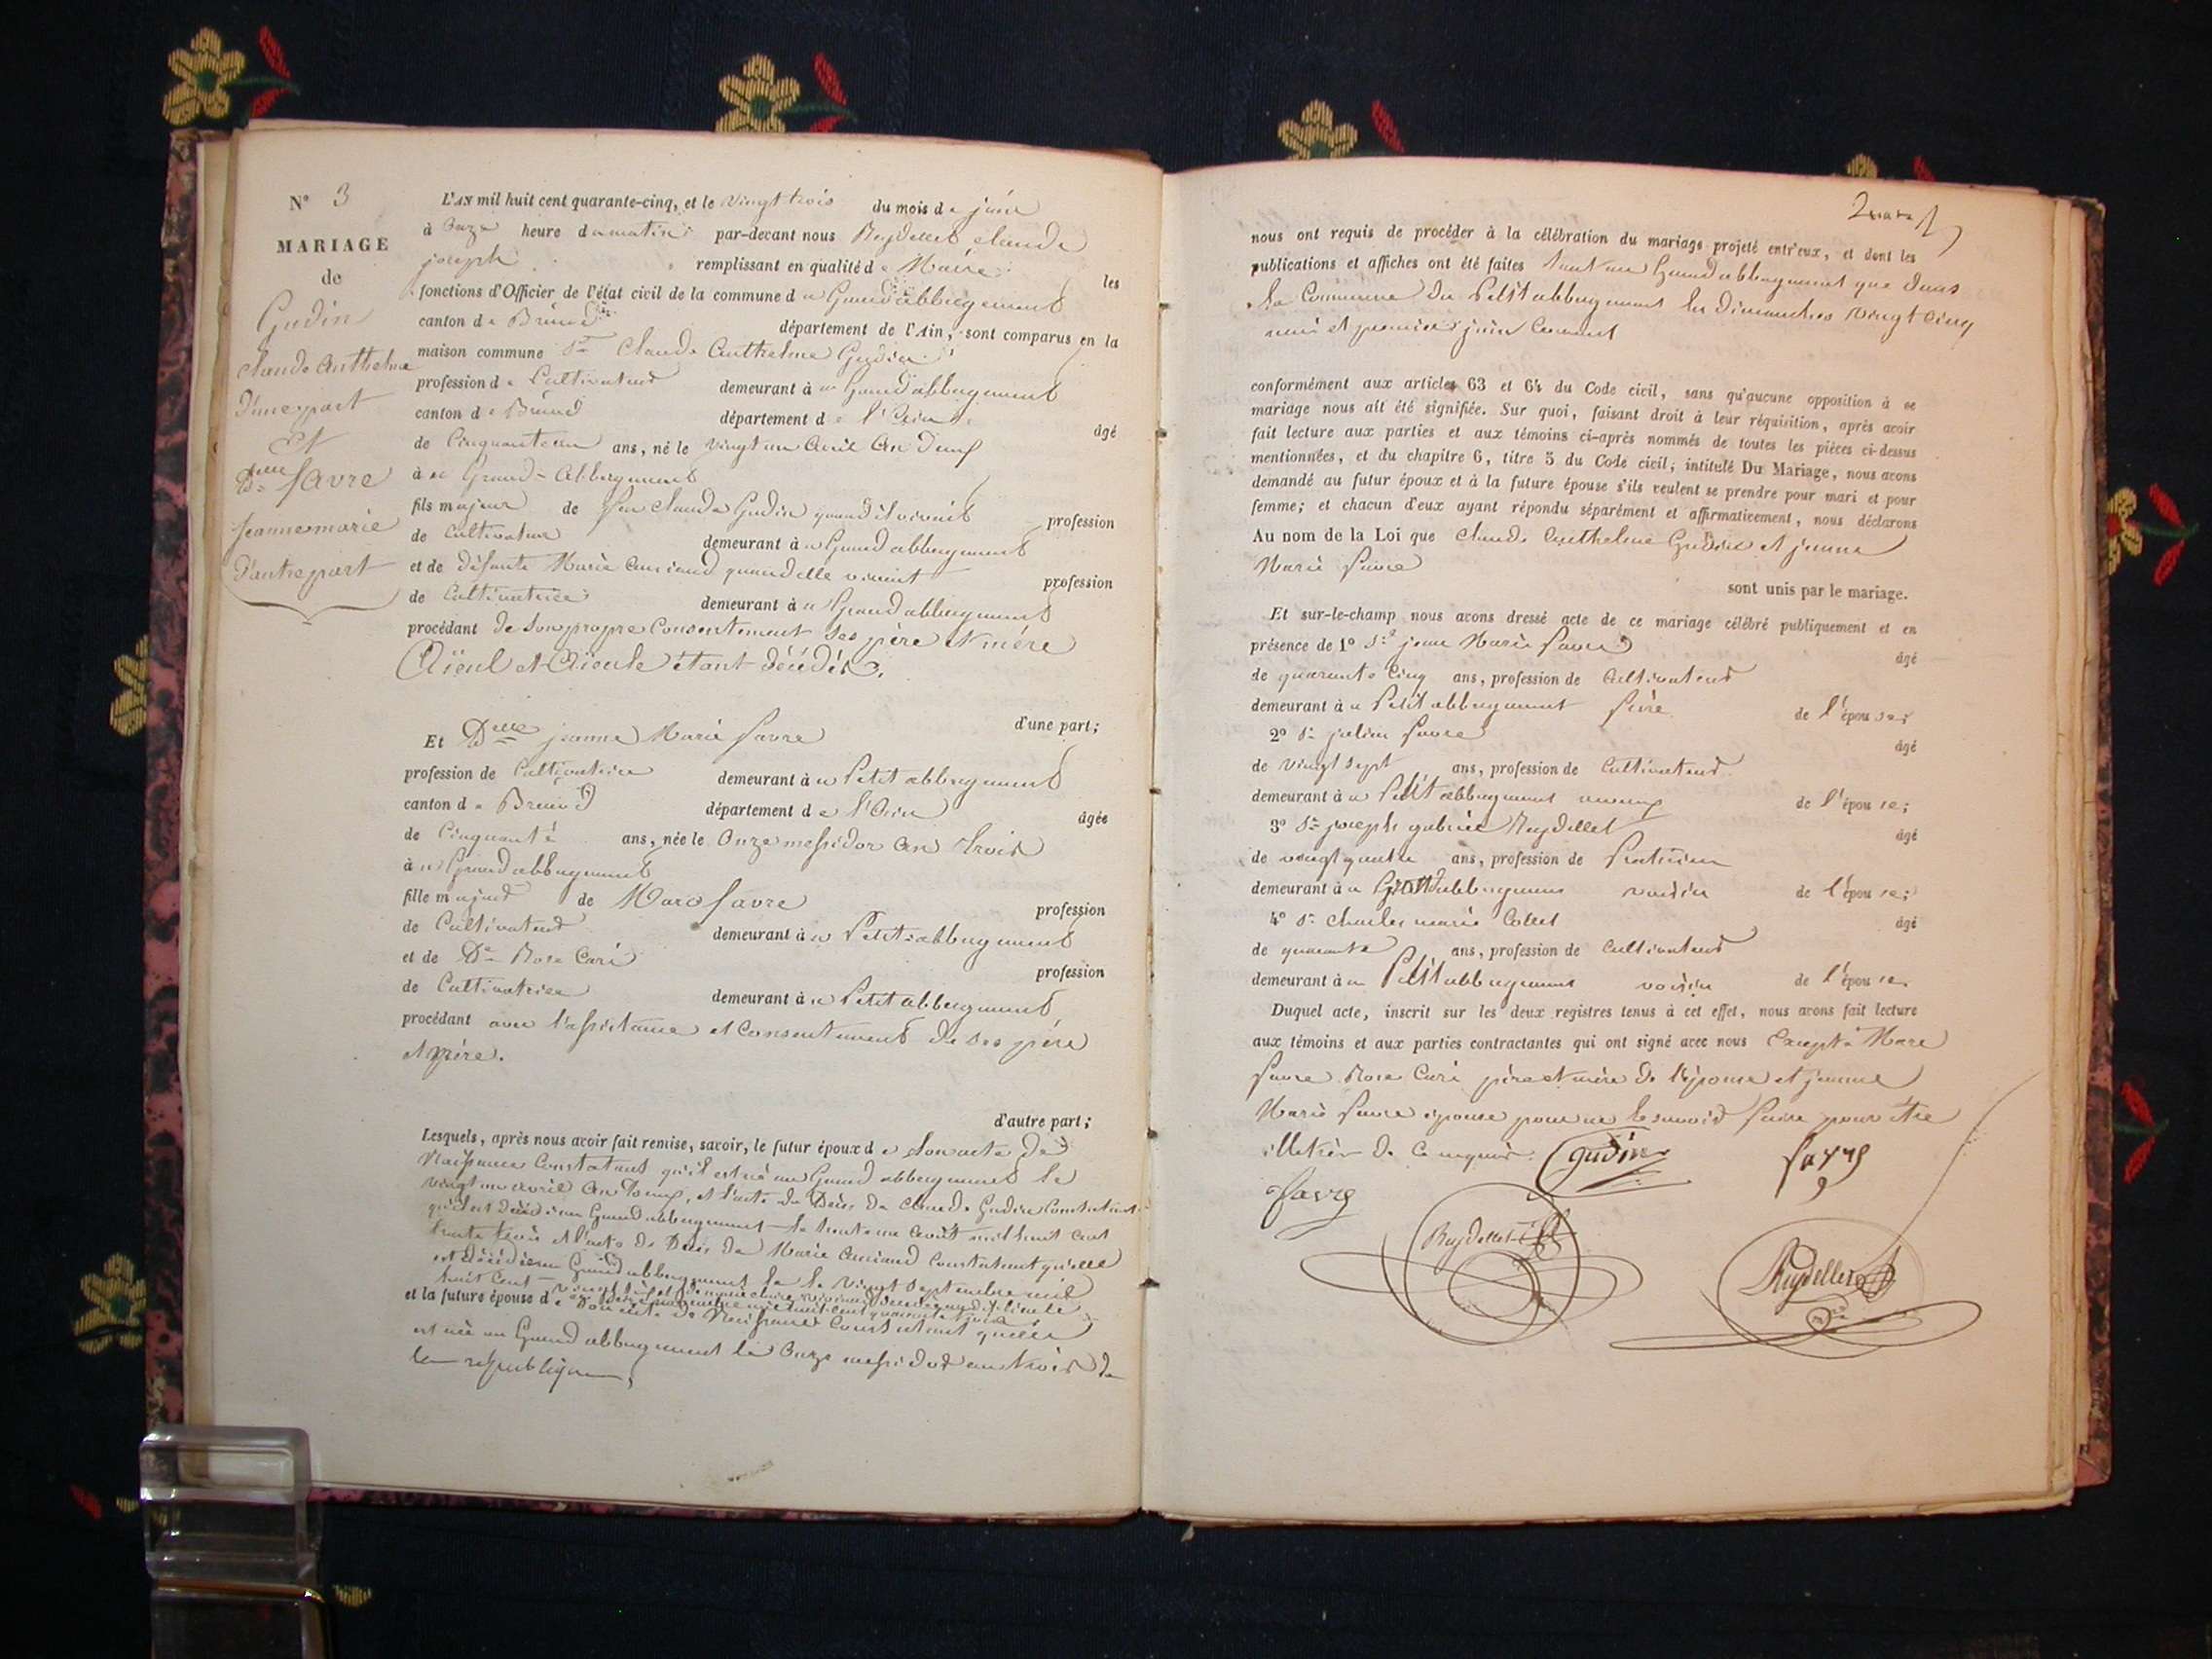 N° 3
MARIAGE
de
Gudin
Claude Anthelme
D'une part
Et
Dlle Favre
Jeanne marie
D'autre part
L'AN mil huit cent quarante-cinq, et le vingt trois du mois de juin
à onze heure du matin par-devant nous Reydellet Claude
joseph remplissant en qualité de Maire les
fonctions d'Officier de l'état civil de la commune du Grand abbergement
canton de Brénod département de l'Ain, sont comparus en la
maison commune Sr Claude Anthelme Gudin
profession de Cultivateur demeurant à au Grand abbergement
canton de Brénod département de l'Ain âgé
de Cinquante un ans, né le vingt un avril an deux
à au Grand-Abbergement
fils majeur de feu Claude Gudin quand il vivait profession
de Cultivateur demeurant à au Grand abbergement
et de défunte Marie quand elle vivait profession
de Cultivatrice demeurant à au Grand abbergement
procédant de son propre Consentement ses père et mère
Aïeul et Aïeule étant décédés.
d'une part;
Et Delle jeanne Marie favre
profession de Cultivatrice demeurant à au Petit abbergement
canton de Brénod département de l'Ain âgée
de Cinquante ans, née le Onze messidor an trois
à au Grand abbergement
fille majeure de Marc favre profession
de Cultivateur demeurant à au Petit abbergement
et de De Rose Cari profession
de Cultivatrice demeurant à au Petit abbergement
procédant avec l'assistance et Consentement de ses père
et mère.
d'autre part;
Lesquels, après nous avoir fait remise, savoir, le futur époux de son acte de
Naissance Constatant qu'il est né au Grand abbergement le
vingt un avril an deux, et l'acte de Décès de Claude Gudin Constatant
qu'il est décédé au Grand abbergement le trente un août mil huit cent
trente trois et l'acte de Décès de Marie Constatant qu'elle
est décédée au Grand abbergement le vingt Septembre mil
huit cent
et la future épouse de son acte de Naissance Constatant qu'elle
est née au Grand abbergement le Onze messidor an trois de
la république
nous ont requis de procéder à la célébration du mariage projeté entr'eux, et dont les
publications et affiches ont été faites tant au Grand abbergement que dans
la Commune du Petit abbergement les Dimanches vingt cinq
mai et premier juin Courant
conformément aux articles 63 et 64 du Code civil, sans qu'aucune opposition à ce
mariage nous ait été signifiée. Sur quoi, faisant droit à leur réquisition, après avoir
fait lecture aux parties et aux témoins ci-après nommés de toutes les pièces ci-dessus
mentionnées, et du chapitre 6, titre 5 du Code civil, intitulé Du Mariage, nous avons
demandé au futur époux et à la future épouse s'ils veulent se prendre pour mari et pour
femme; et chacun d'eux ayant répondu séparément et affirmativement, nous déclarons
Au nom de la Loi que Claude Anthelme Gudin et jeanne
Marie favre
sont unis par le mariage.
Et sur-le-champ nous avons dressé acte de ce mariage célébré publiquement et en
présence de 1° Sr jean Marie favre âgé
de quarante Cinq ans, profession de Cultivateur
demeurant à au Petit abbergement frère de l'épouse
2° Sr julien favre âgé
de vingt sept ans, profession de Cultivateur
demeurant à au Petit abbergement neveu de l'épouse;
3° Sr joseph gabriel Reydellet âgé
de vingt quatre ans, profession de Praticien
demeurant à au abbergement voisin de l'épouse;
4° Sr Charles marie Collet âgé
de quarante ans, profession de Cultivateur
demeurant à au Petit abbergement voisin de l'épouse.
Duquel acte, inscrit sur les deux registres tenus à cet effet, nous avons fait lecture
aux témoins et aux parties contractantes qui ont signé avec nous Excepté Marc
favre Rose Cari père et mère de l'épouse et jeanne
Marie favre épouse pour ne le savoir faire pour être
illétrés de ce requis. Gudin favre
favre
Reydellet
Reydellet